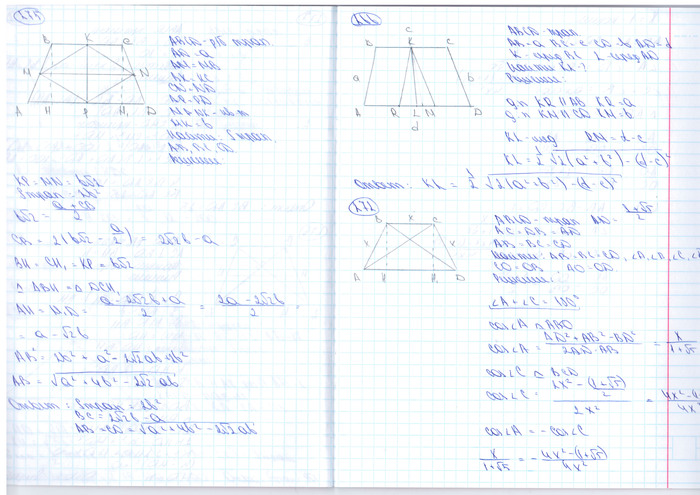 275
B K C
M N
A H P H₁ D
ABCD - р/б трап.
AD = a
AM = MB
BK = KC
CN = ND
AP = PD
MK = b
Найти: S трап.
AB, BC, CD
Решение:
KP = MN = b√2
S трап = 2b²
b√2 = (a + CB)/2
CB = 2(b√2 - a/2) = 2√2b - a
BH = CH₁ = KP = b√2
△ABH = △DCH₁
AH = H₁D = (a - 2√2b + a)/2 = (2a - 2√2b)/2 =
= a - √2b
AB² = 2b² + a² - 2√2ab + 2b²
AB = √(a² + 4b² - 2√2ab)
Ответ: S трап = 2b²
BC = 2√2b - a
AB = CD = √(a² + 4b² - 2√2ab)
c
B K C
a b
A R L N D
d
ABCD - трап.
AB = a BC = c CD = b AD = d
K - сред BC L - сред AD
Найти KL - ?
Решение:
д.п KR || AB KR = a
д.п KN || CD KN = b
KL - мед RN = d - c
KL = 1/2 √(2(a² + b²) - (d - c)²)
Ответ: KL = 1/2 √(2(a² + b²) - (d - c)²)
272
B x C
x x
A H H₁ D
ABCD - трап AD = (1+√5)/2
AC = DB = AD
AB = BC = CD
Найти: AB = BC = CD, ∠A, ∠B, ∠C, ∠
CO = OB AO = OD
Решение:
∠A + ∠C = 180°
cos∠A △ABD
cos∠A = (AD² + AB² - BD²)/(2AD · AB) = x/(1+√5)
cos∠C △BCD
cos∠C = (2x² - (1+√5)/2)/(2x²) = (4x² - (1
4x²
cos∠A = -cos∠C
x/(1+√5) = -(4x² - (1+√5))/(4x²)